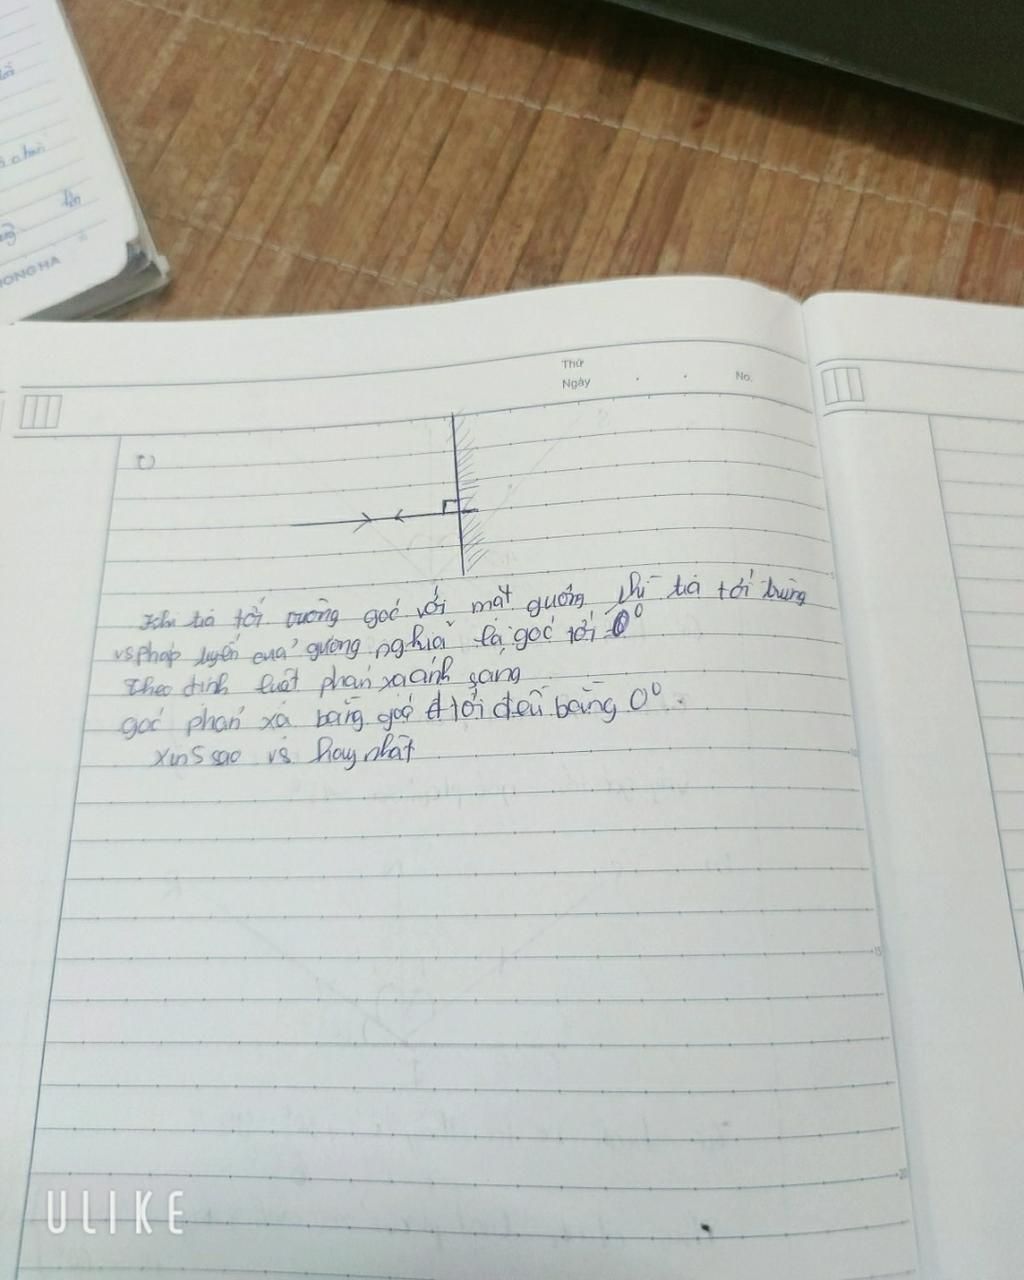 ƯƠNG HÀ
Thứ
Ngày . . No.
c)
Khi tia tới vuông góc với mặt gương thì tia tới trùng
vs pháp tuyến của gương nghĩa là góc tới 0°
theo định luật phản xạ ánh sáng
góc phản xạ bằng góc tới đều bằng 0°.
xin 5 sao vs hay nhất
5
10
15
20
ULIKE